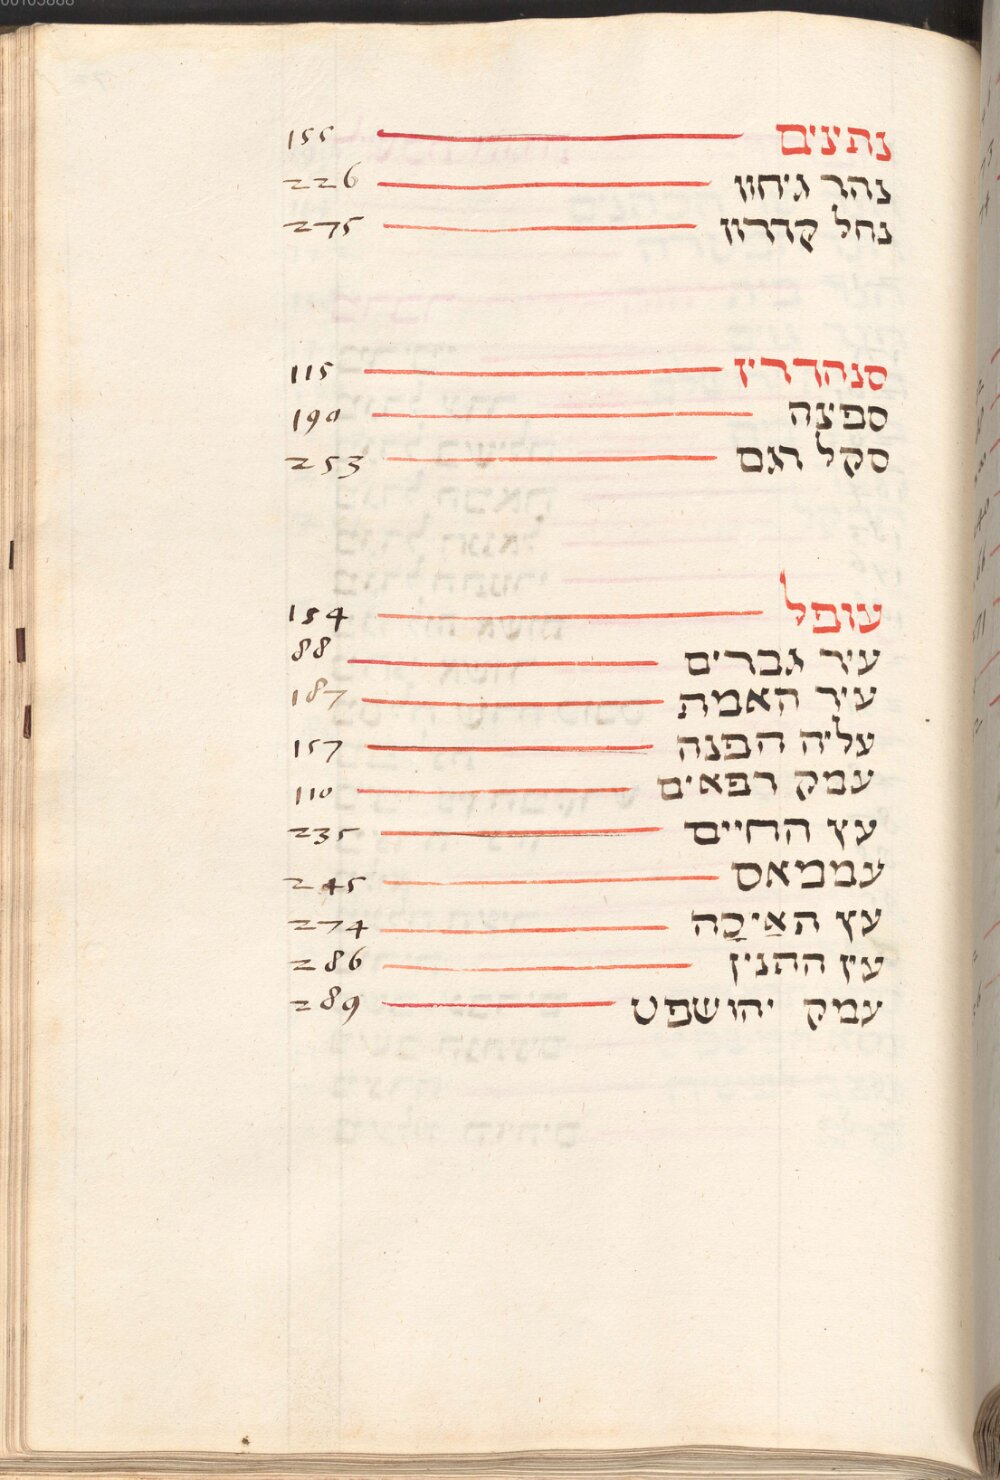 נתינים 155
נהר גיחון 226
נחל קדרון 275
סנהדרין 115
ספינה 190
סקל רגם 253
עופל 154
עיר גברים 88
עיר האמת 187
עליה הפנה 157
עמק רפאים 110
עץ החיים 235
עממאס 245
עץ האיכה 274
עין התנין 286
עמק יהושפט 289